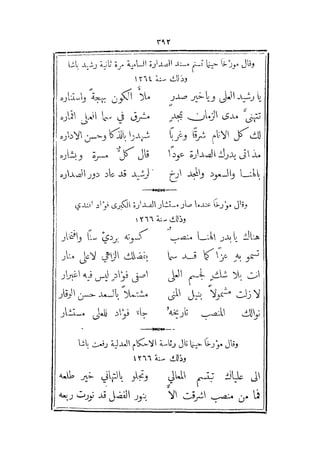 ٣٩٢
وقال مؤرخا حينما تسنم مسند الصدارة السامية مرة ثانية رشيد باشا
وذلك سنة ١٢٦٤
يا رشيد العلى ويا خير صدر ملأ الكون بهجة واستناره
تتهنى مدى الزمان بمجد مشرق في سما العلى اثماره
لك كل الانام شرقا وغربا شهدوا بالذكا وحسن الاداره
مذ اتى يدرك الصدارة عودا قال كل مسرة وبشاره
بالهنا والسعود والمجد ارخ لرشيد قد عاد دور الصداره
وقال مؤرخا عندما صار مستشار الصدارة الكبرى فؤاد افندي
وذلك سنة ١٢٦٦
هناك يا بدر الهنا منصب كسوته بردي سنا وافتخار
تسمو به عزا كما قد سما بفضلك الزاهي لاعلى منار
انت بلا شك لجسم العلى اصفى فؤاد ليس فيه اغبرار
لا زلت مشمولا بنيل المنى مشتملا بالسعد حسن الوقار
نوالك المنصب تاريخه جاء فؤاد للعلى مستشار
وقال مؤرخا حينما نال رئاسة الاحكام العدلية رفعت باشا
وذلك سنة ١٢٦٦
الى علياك تبتسم المعالي وتجلو بالتهاني خير طلعه
فما من منصب اشرقت الا بنور الفضل قد نورت ربعه